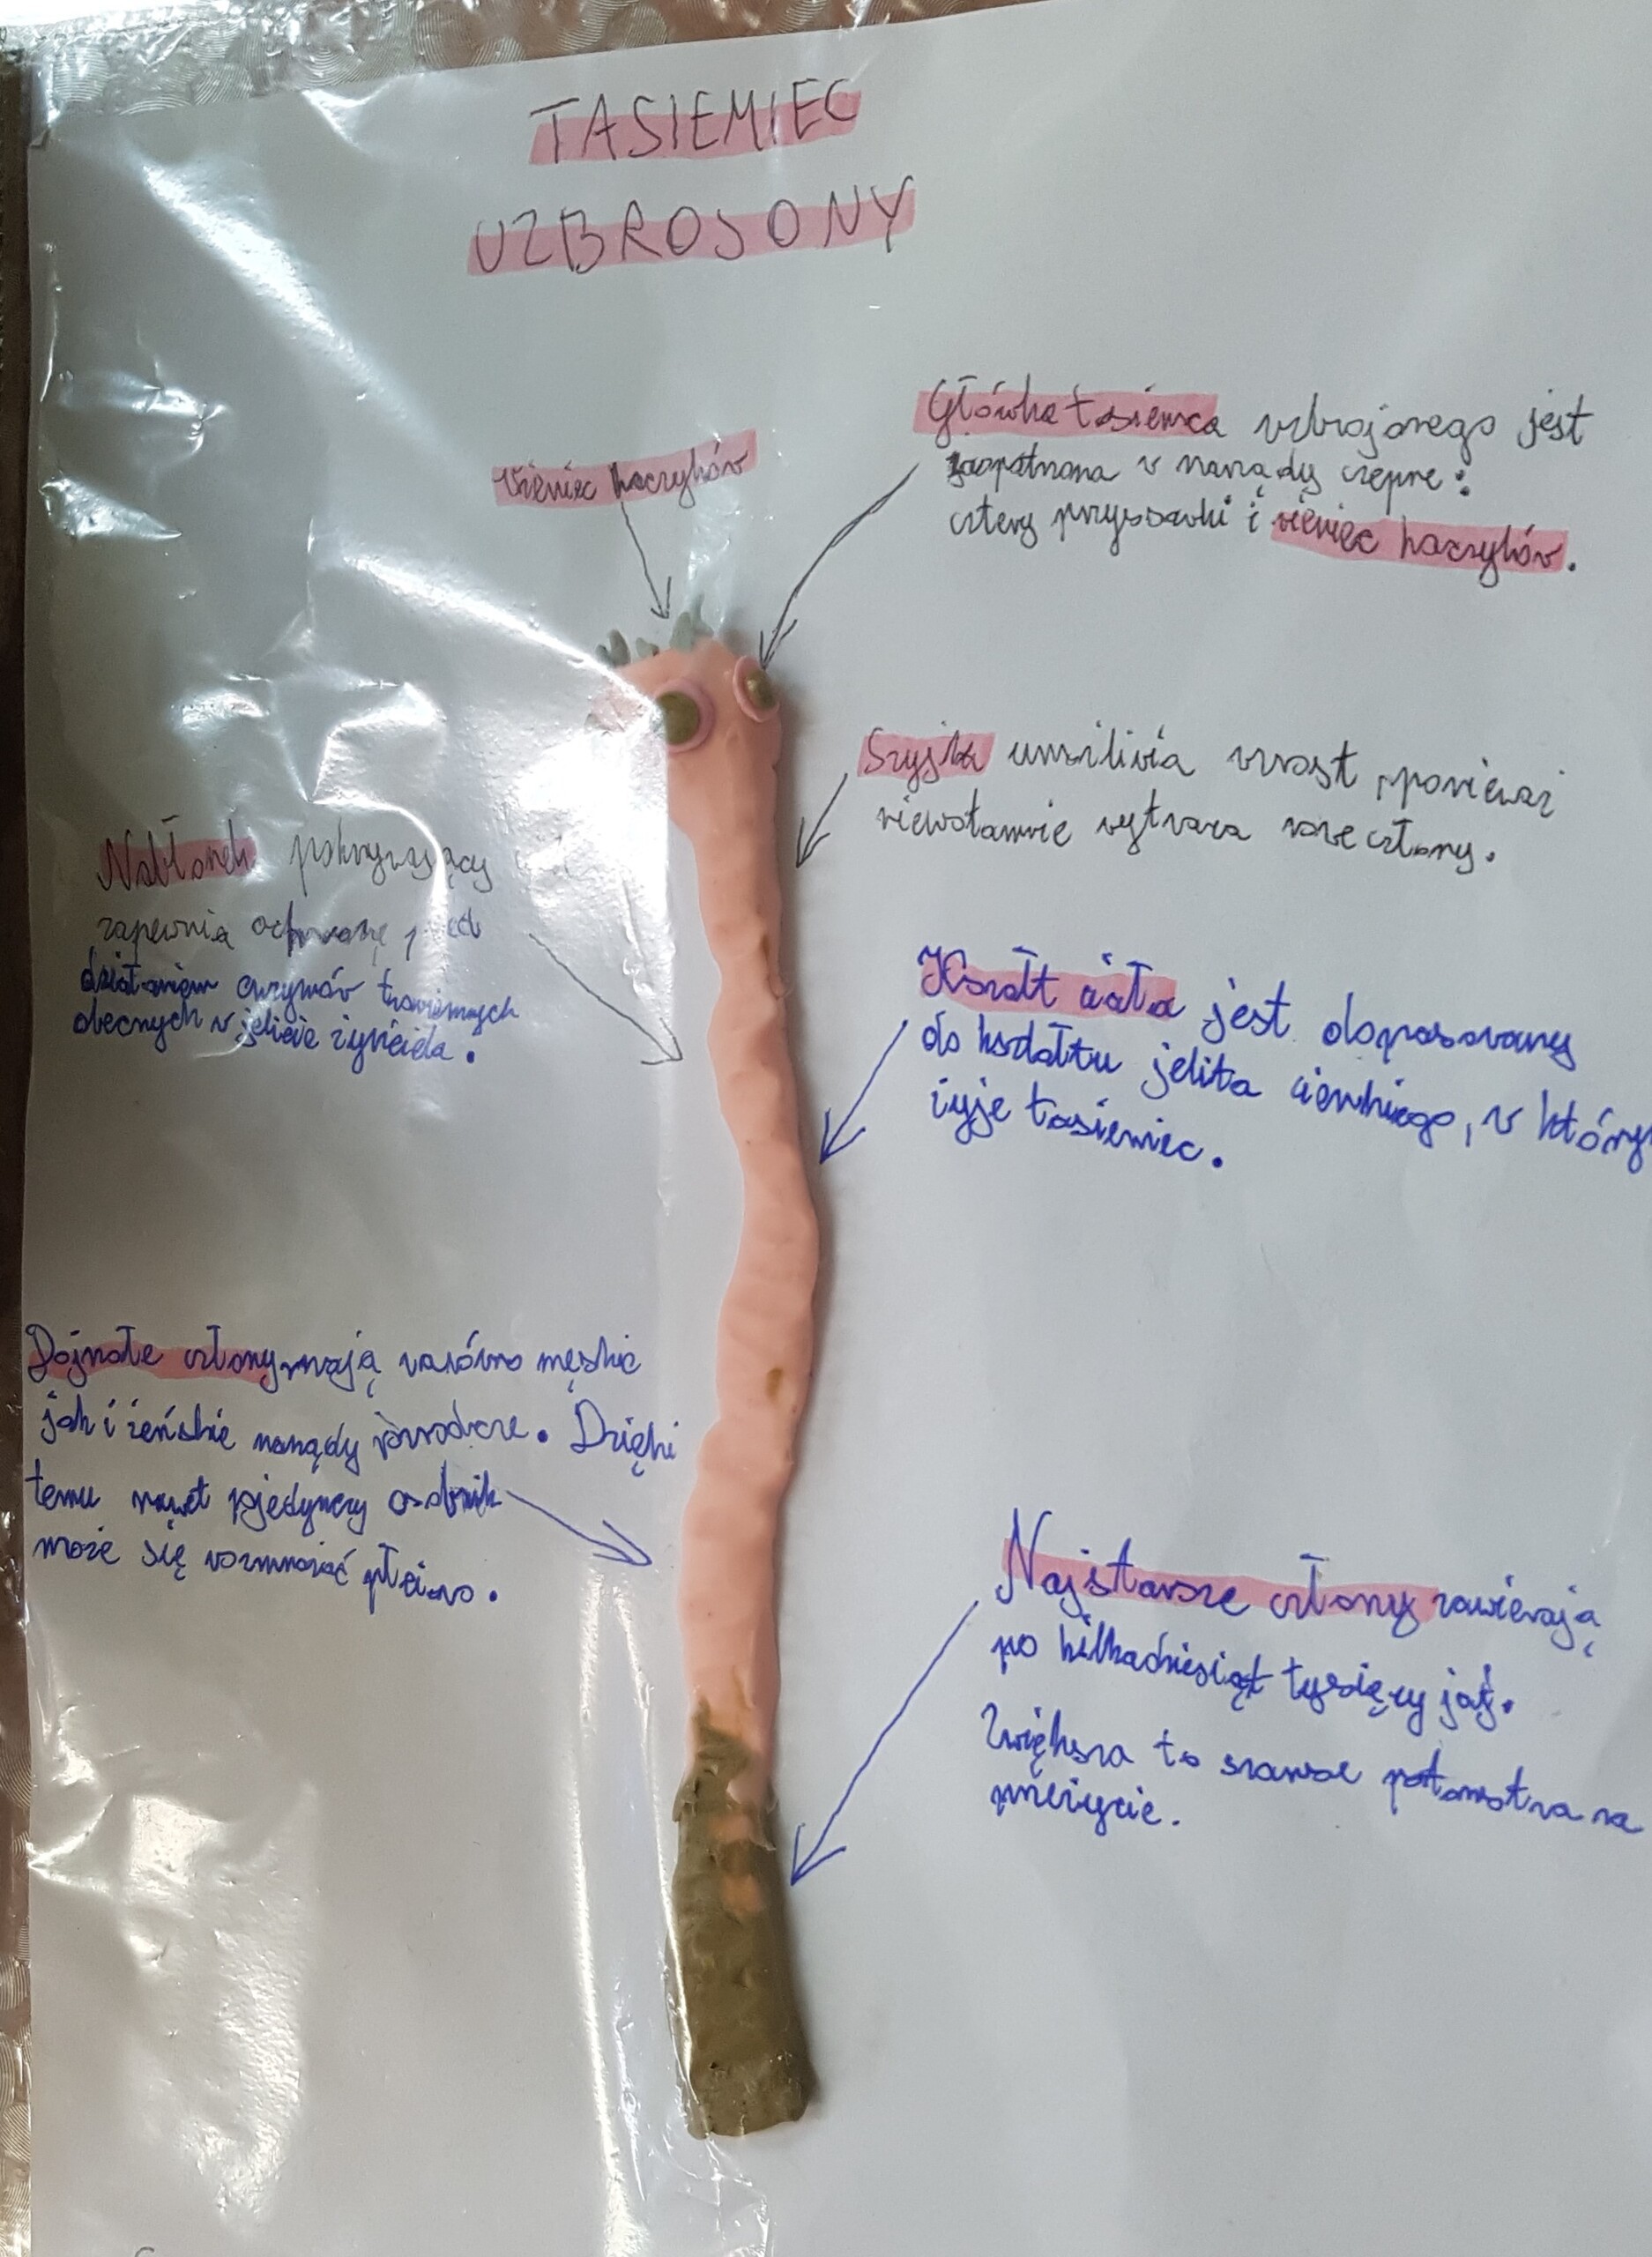 TASIEMIEC
UZBROJONY
Wieniec haczyków
Główka tasiemca uzbrojonego jest
zaopatrzona w narządy czepne:
cztery przyssawki i wieniec haczyków.
Szyjka umożliwia wzrost, ponieważ
nieustannie wytwarza nowe człony.
Nabłonek pokrywający
zapewnia ochronę przed
działaniem enzymów trawiennych
obecnych w jelicie żywiciela.
Kształt ciała jest dopasowany
do kształtu jelita cienkiego, w który
żyje tasiemiec.
Dojrzałe człony mają zarówno męskie
jak i żeńskie narządy rozrodcze. Dzięki
temu nawet pojedynczy osobnik
może się rozmnażać płciowo.
Najstarsze człony zawierają
po kilkadziesiąt tysięcy jaj.
Zwiększa to szanse potomstwa na
przeżycie.